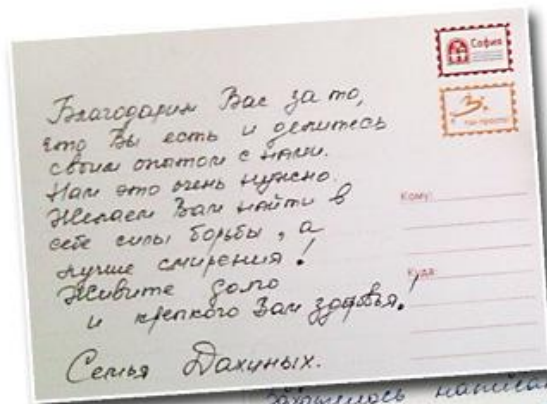 София
Благодарим Вас за то,
что Вы есть и делитесь
своим опытом с нами.
Нам это очень нужно.
Желаем Вам найти в
себе силы борьбы, а
лучше смирения!
Живите долго
и крепкого Вам здоровья!
Семья Дахиных.
Кому:
Куда:
написа